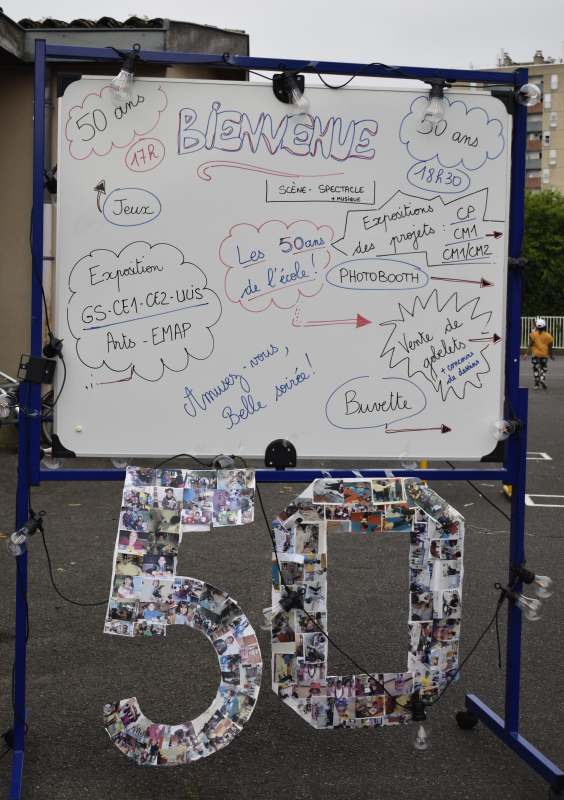 50 ans
17H
BIENVENUE
50 ans
18H30
SCÈNE - SPECTACLE
+ MUSIQUE
Jeux
Expositions
des projets : CP
CM1
CM1/CM2
Les 50 ans
de l'école !
PHOTOBOOTH
Exposition
GS-CE1-CE2-ULIS
Arts - EMAP
Vente de
gobelets
+ concours
de dessins
Amusez-vous,
Belle soirée !
Buvette
50